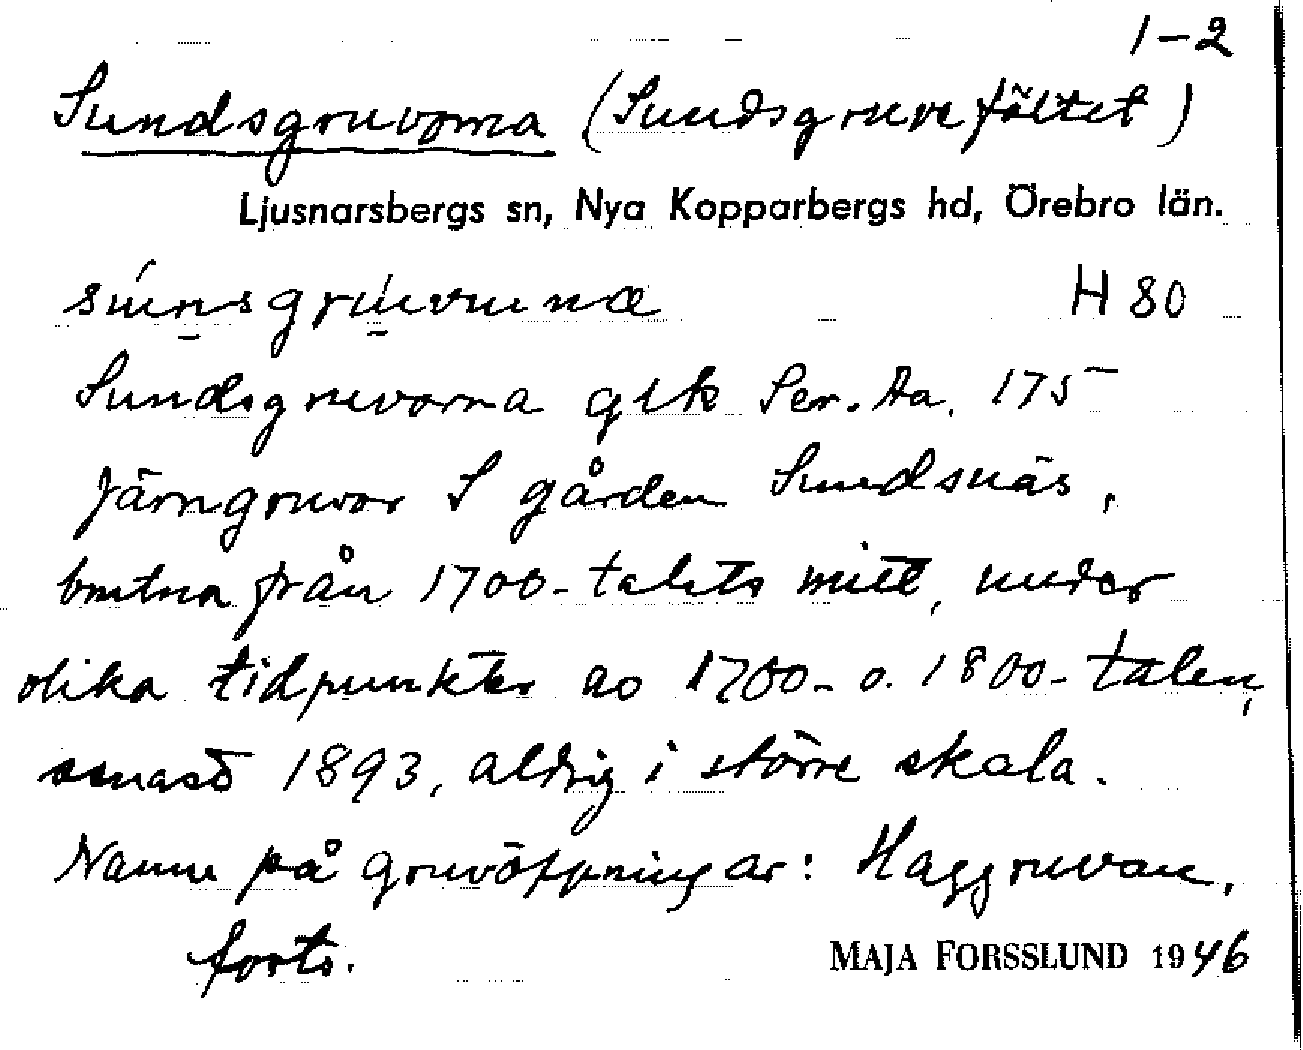 1-2
Sundsgruvorna (Sundsgruvefältet)
Ljusnarsbergs sn, Nya Kopparbergs hd, Örebro län.
súnsgrúvuna H 80
Sundsgruvorna glk Ser. Aa. 175
Järngruvor S gården Sundsnäs,
brutna från 1700-talets mitt, under
olika tidpunkter av 1700- o. 1800-talen,
senast 1893, aldrig i större skala.
Namn på gruvöppningar: Haggruvan,
forts. MAJA FORSSLUND 1946